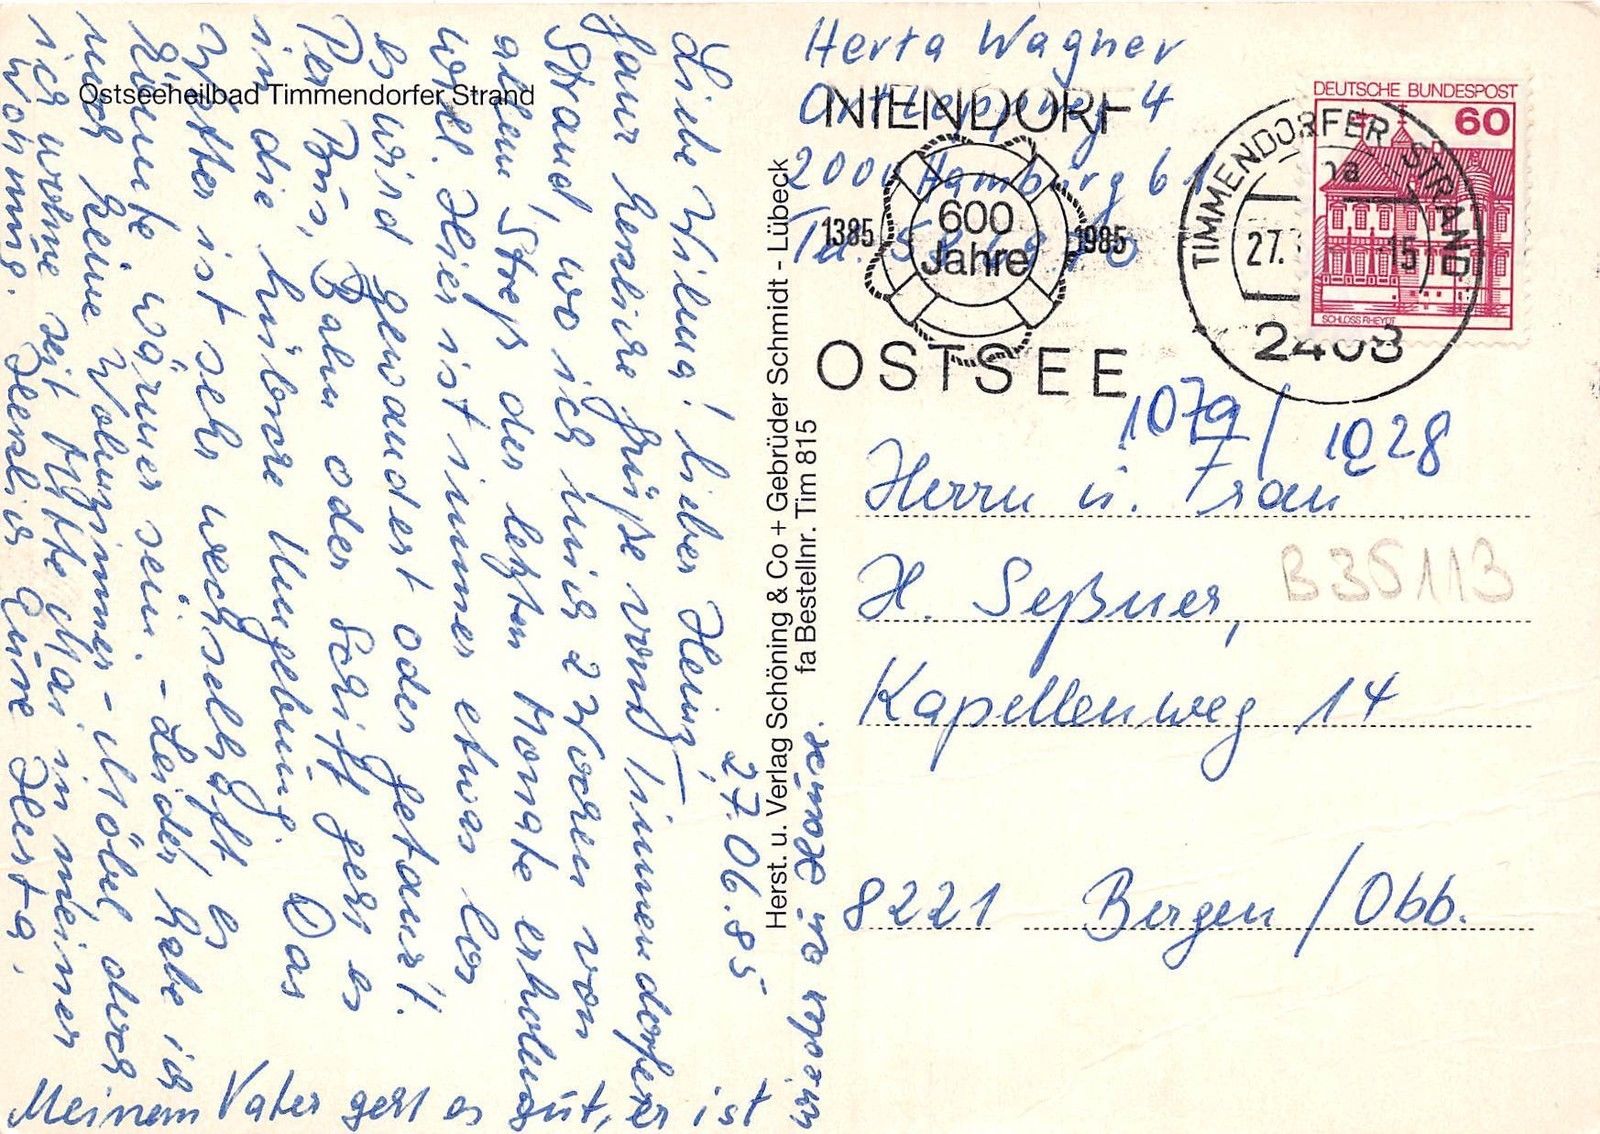 Ostseeheilbad Timmendorfer Strand
27.06.85
Liebe Wilma! Lieber Heinz!
Ganz herzliche Grüße vom Timmendorfer
Strand, wo ich mich 2 Wochen von
allem Streß der letzten Monate erholen
will. Hier ist immer etwas los
es wird gewandert oder getanzt.
Per Bus, Bahn oder Schiff geht es
in die hübsche Umgebung. Das
Wetter ist sehr wechselhaft es
könnte wärmer sein. - Leider habe ich
noch keine Wohnzimmer-Möbel, doch
ich wohne seit Mitte Mai in meiner
Wohnung. Herzlich Eure Herta.
Meinem Vater geht es gut, er ist
wieder zu Hause.
Herst. u. Verlag Schöning & Co + Gebrüder Schmidt - Lübeck
fa Bestellnr. Tim 815
Herta Wagner
4
2000 Hamburg 61
Tel. 58
NIENDORF
1385 600 Jahre 1985
OSTSEE
TIMMENDORFER STRAND
na
27. 15
2408
DEUTSCHE BUNDESPOST
60
SCHLOSS RHEYDT
1079/ 1028
Herrn u. Frau
H. Seßner,
B35113
Kapellenweg 14
8221 Bergen/Obb.